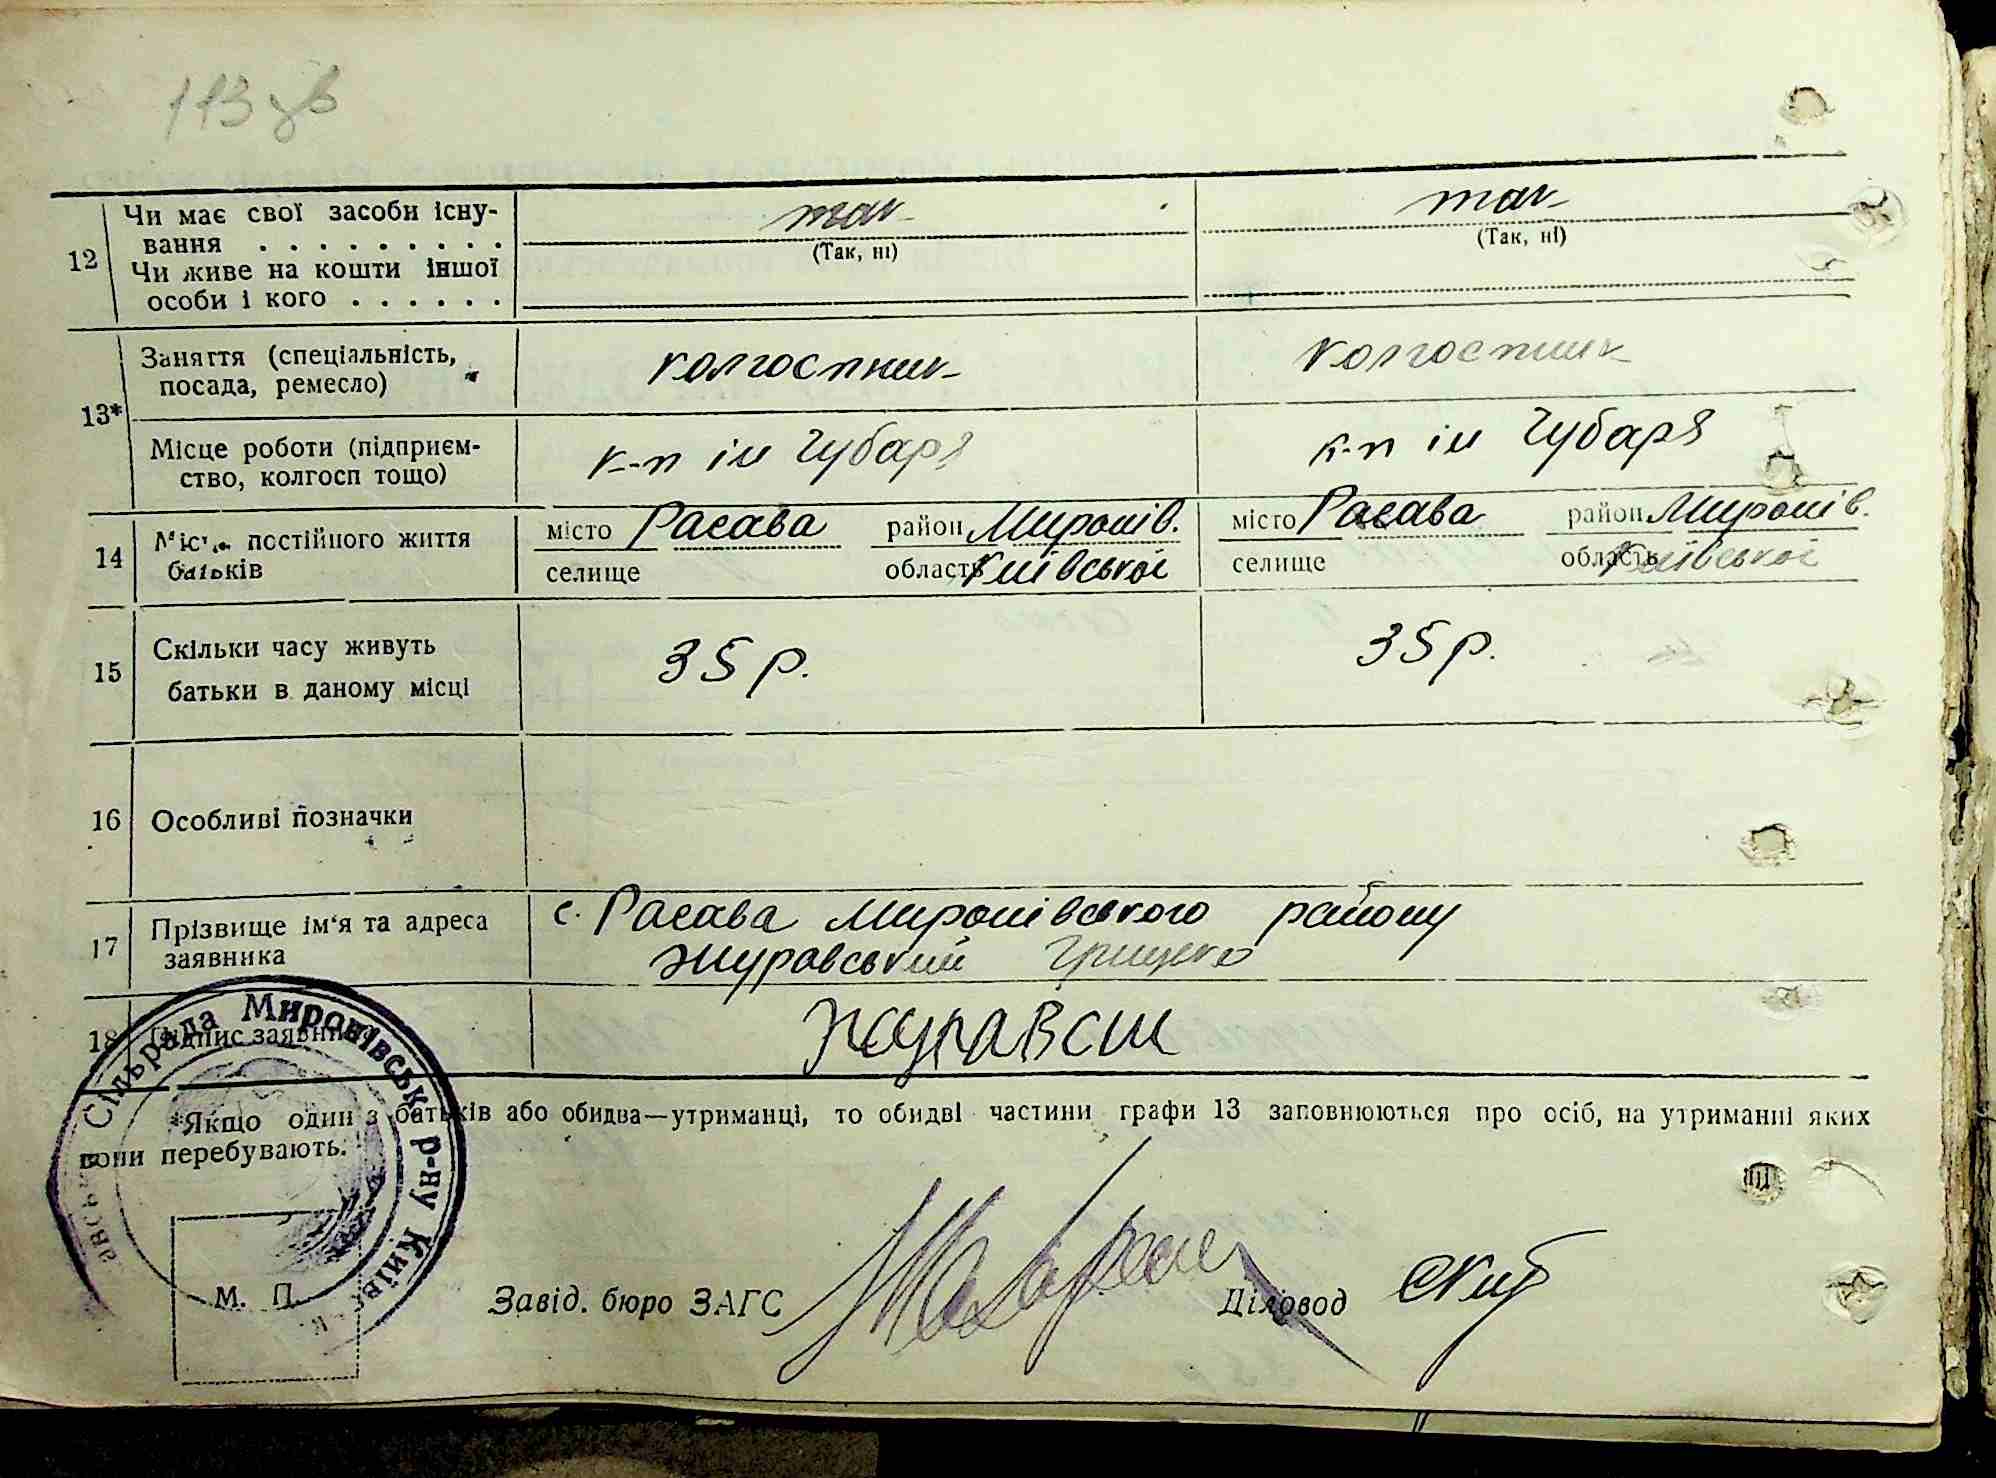 113 зв
12 Чи має свої засоби існу-
вання . . . . . . . . . так так
(Так, ні) (Так, ні)
Чи живе на кошти іншої
особи і кого . . . . . .
13* Заняття (спеціальність,
посада, ремесло) колгоспник колгоспник
Місце роботи (підприєм-
ство, колгосп тощо) к-п ім Чубаря к-п ім Чубаря
14 Місце постійного життя
батьків
місто Расава район Миронів. місто Расава район Миронів.
селище область Київської селище область Київської
15 Скільки часу живуть
батьки в даному місці 35 р. 35 р.
16 Особливі позначки
17 Прізвище ім'я та адреса
заявника
с. Расава Миронівського району
Журавський Грицько
18 Підпис заявника Журавски
*Якщо один з батьків або обидва—утриманці, то обидві частини графи 13 заповнюються про осіб, на утриманні яких
вони перебувають.
авська Сільрада Миронівськ р-ну Київськ
М. П.
Завід. бюро ЗАГС Діловод